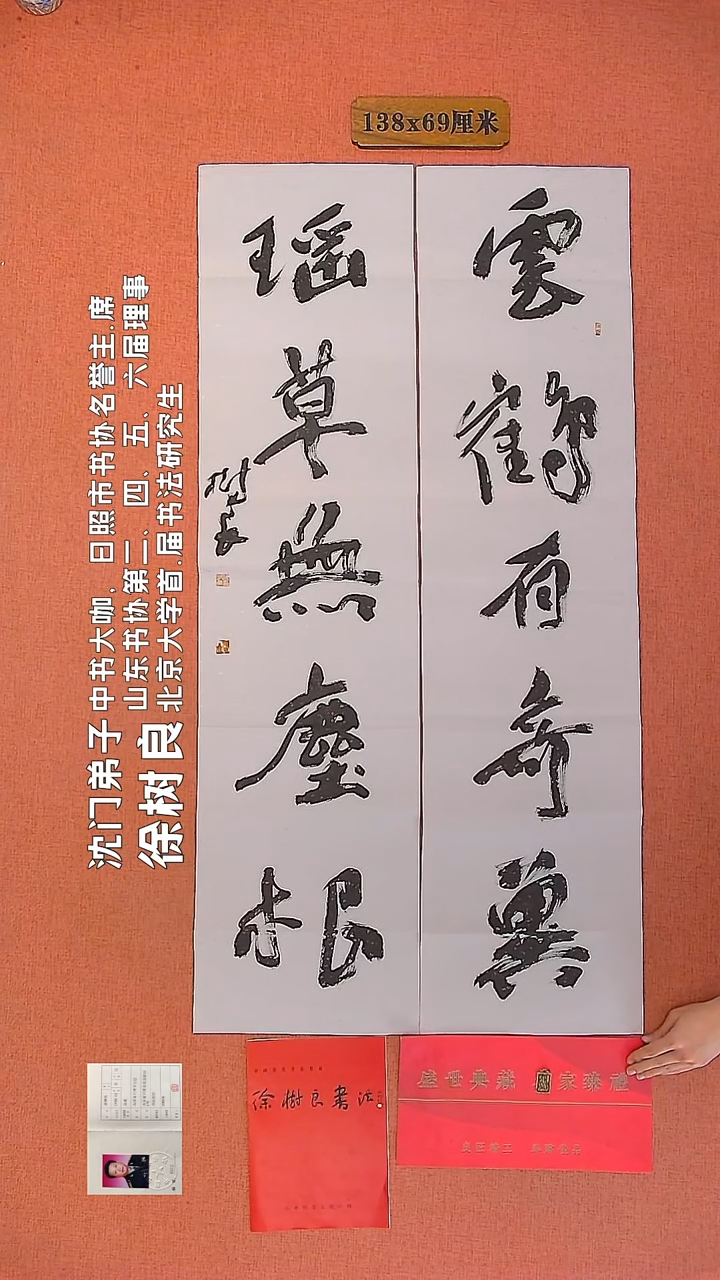 138x69厘米
雲鶴有奇翼
瑶草無塵根
樹良
沈门弟子 中书大咖，日照市书协名誉主.席
山东书协第三、四、五、六届理事
徐树良 北京大学首.届书法研究生
徐樹良書法
盛世典藏 國家臻禮